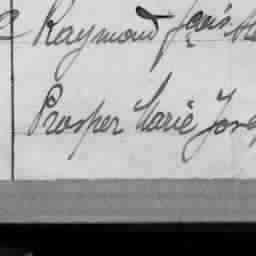 Raymond Louis
Prosper Marie Jose